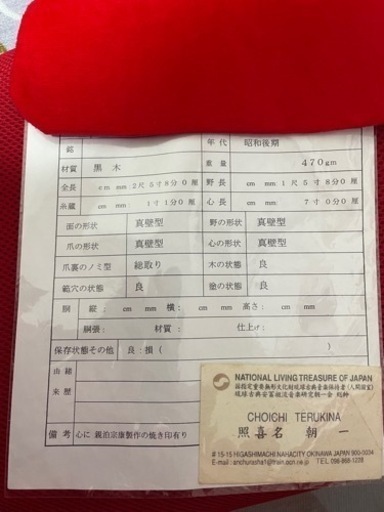 銘 年代 昭和後期
材質 黒木 重量 470gm
全長 cm mm:2尺5寸8分0厘 野長 cm mm:1尺5寸8分0厘
糸蔵 cm mm: 1寸1分0厘 心長 cm mm: 7寸0分0厘
面の形状 真壁型 野の形状 真壁型
爪の形状 真壁型 心の形状 真壁型
爪裏のノミ型 総取り 木の状態 良
範穴の状態 良 塗の状態 良
胴 縦: cm mm 横: cm mm 高さ: cm mm
胴張: 材質: 仕上げ:
保存状態その他 良:損( )
由緒
来歴
備考 心に 親泊宗康製作の焼き印有り
NATIONAL LIVING TREASURE OF JAPAN
CHOICHI TERUKINA
照喜名 朝一
#15-15 HIGASHIMACHI NAHACITY OKINAWA JAPAN 900-0034